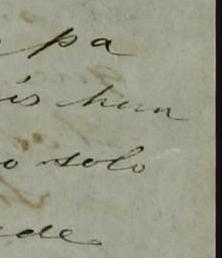 pa
is hum
o solo
de